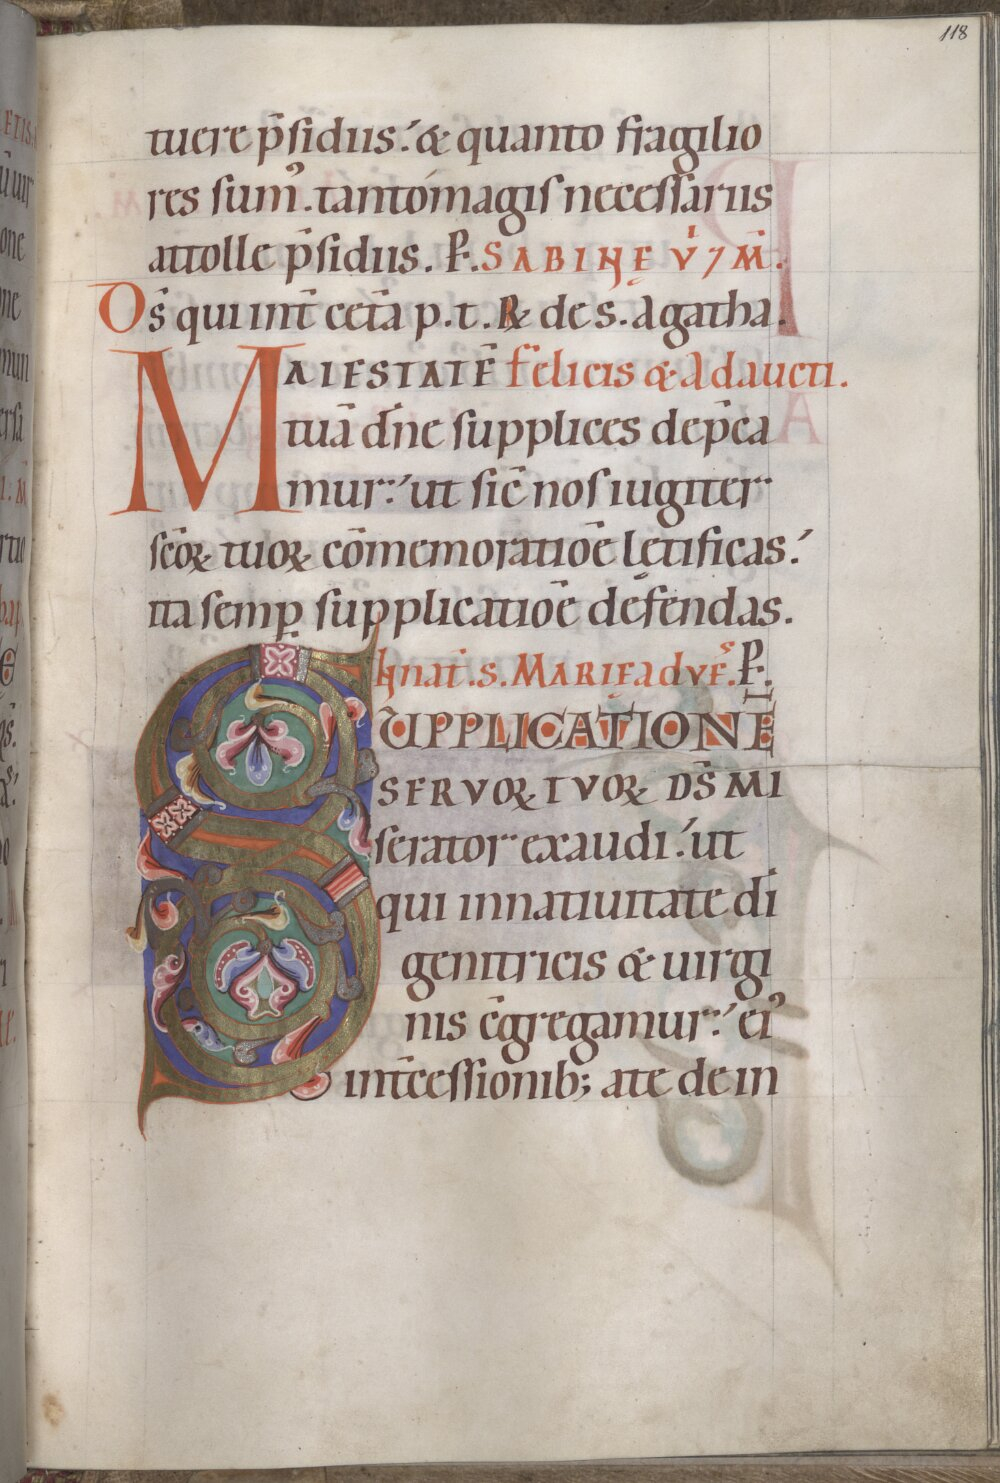 118
tuere p̄sidiis.' & quanto fragilio
res sum᾽. tantó magis necessariis
attolle p̄sidiis. P̱. SABINE V̇ 7 M̄.
D̄s qui int̄ cet̄a p. t. R de s. Agatha.
MAIESTATĒ Felicis & Adaucti.
tuā dn̄e supplices dep̄ca
mur.' ut sic̄ nos iugiter
sc̄oꝝ tuoꝝ cōmemoratiōe lętificas.'
ita semp̱ supplicatiōe defendas.
In nat̄. s. MARIE ad vēs. P̱.
SUPPLICATIONĒ
SERVOꝝ TVOꝝ D̄S MI
serator exaudi.' ut
qui in natiuitate di
genitricis & uirgi
nis c̄gregamur.' ei᾽
int̄cessionib; a te de in